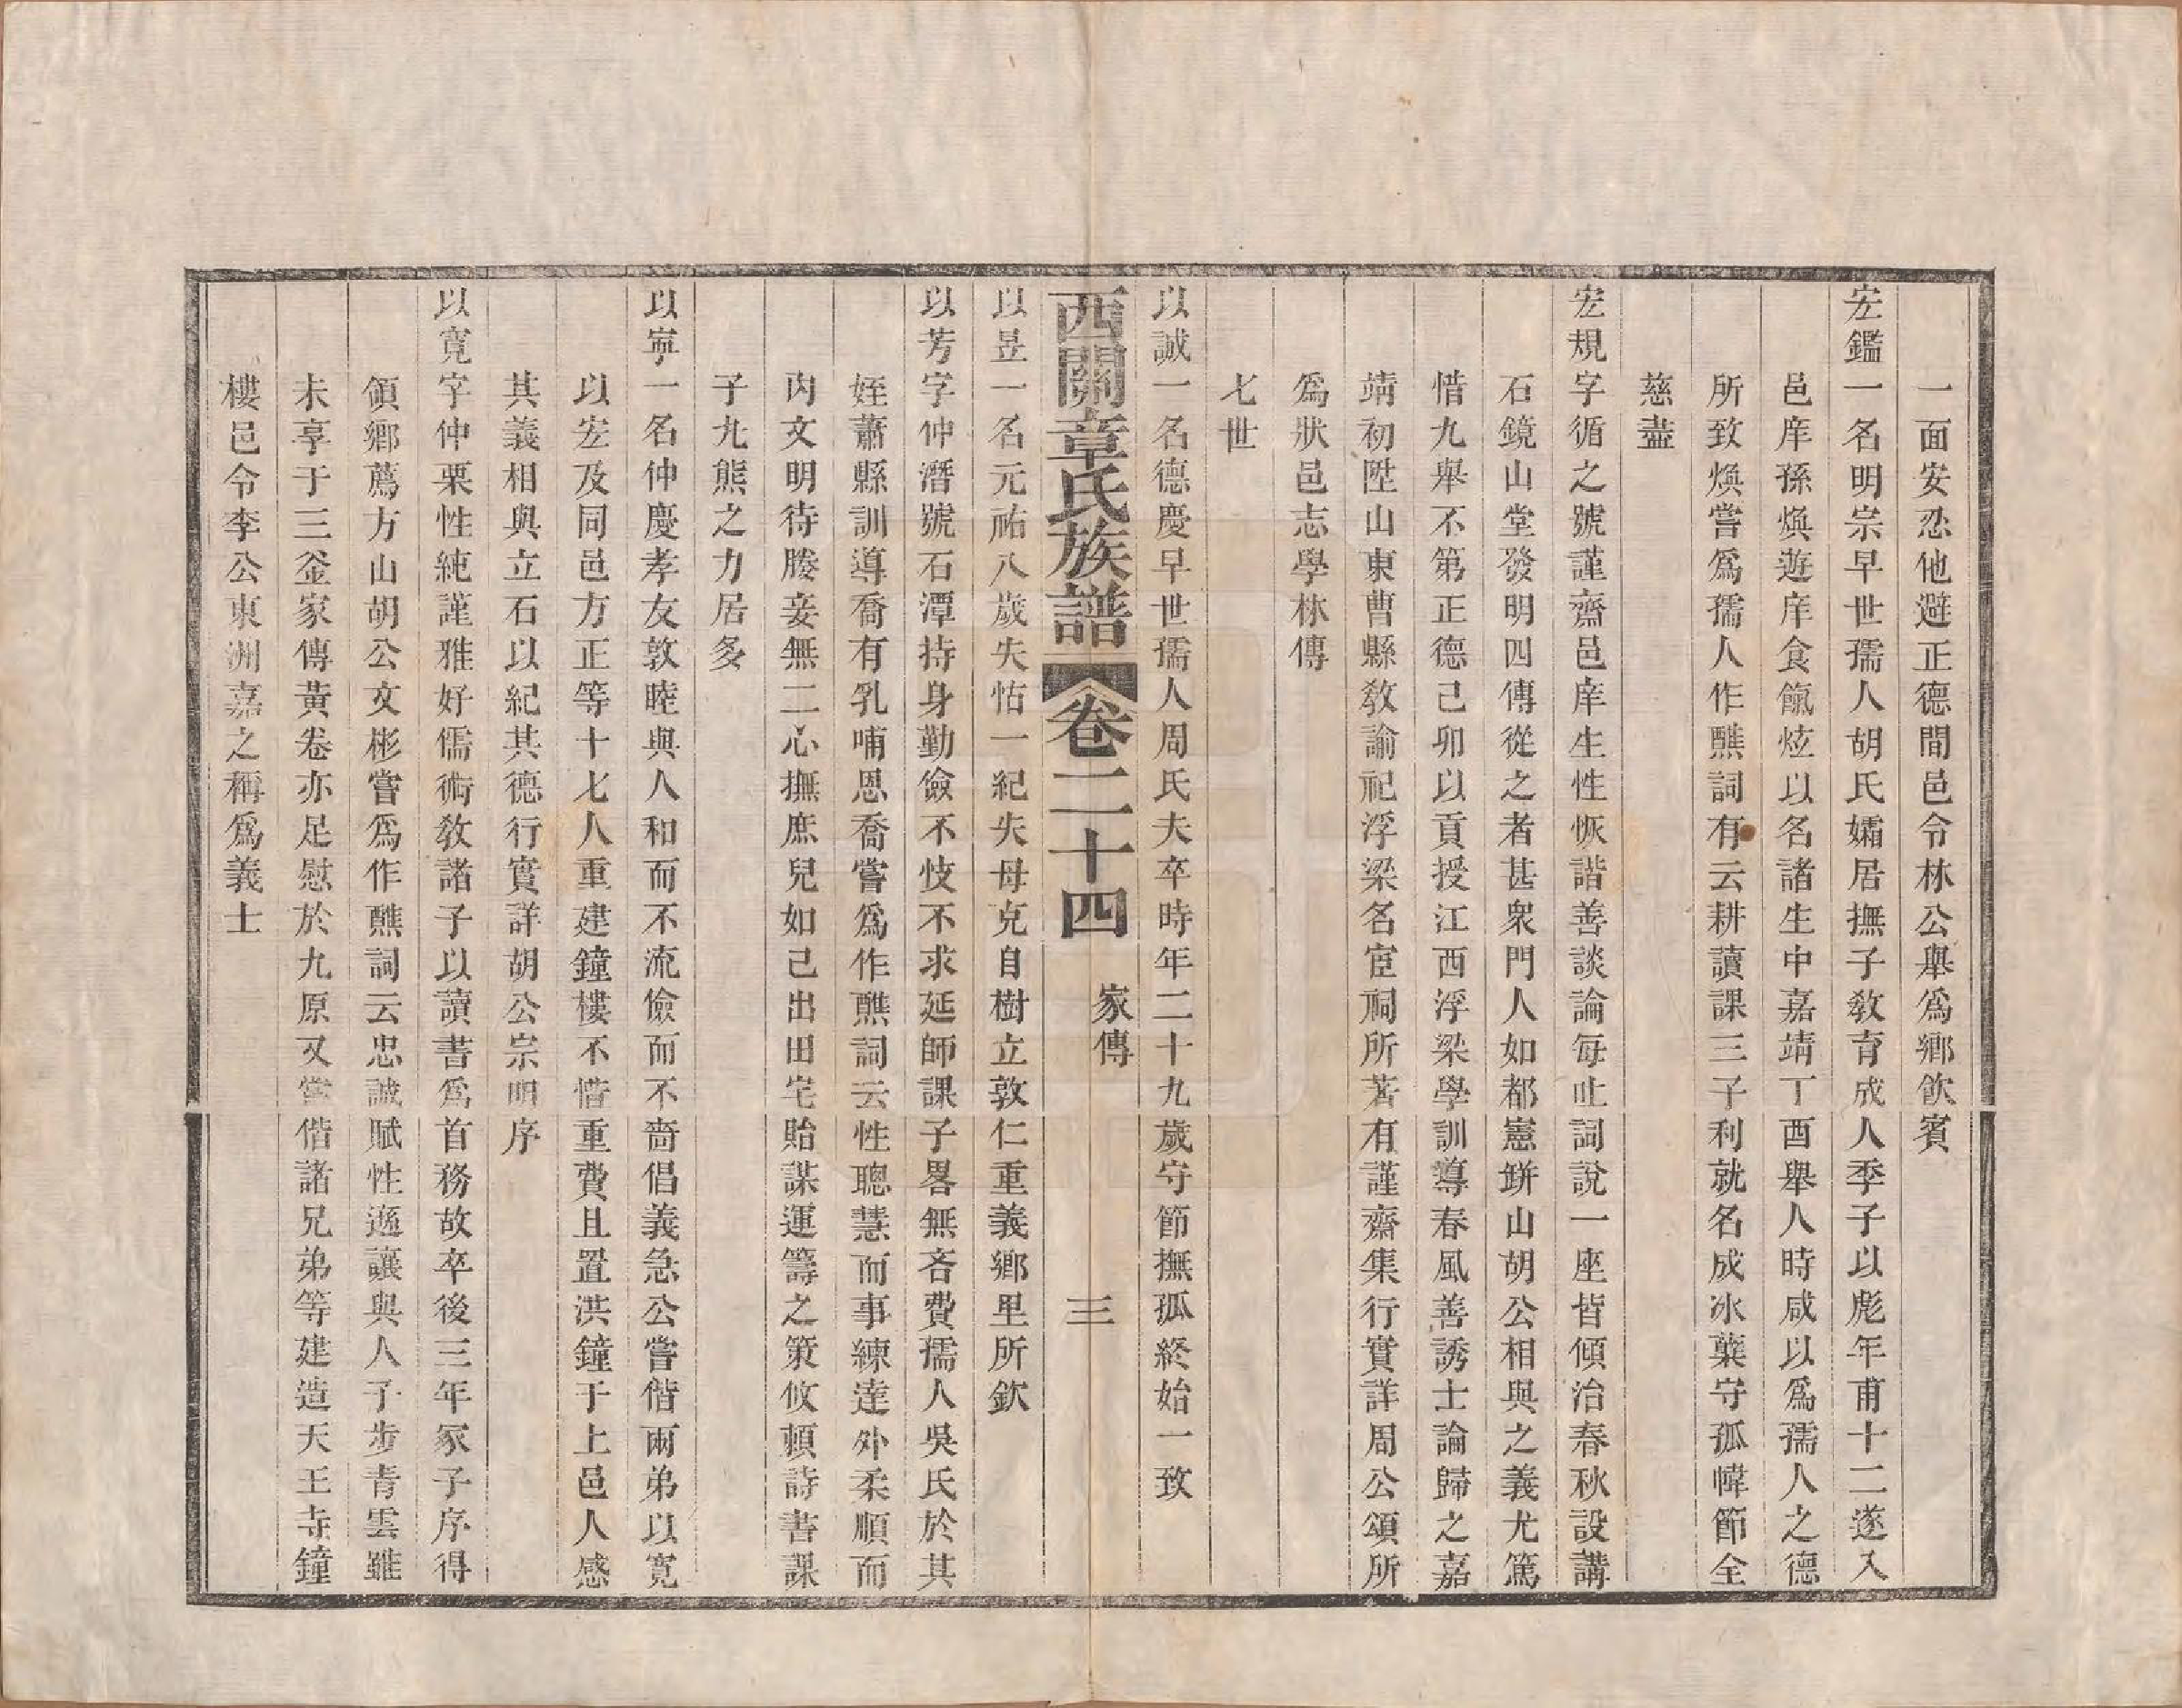 一面安忍他避正德間邑令林公舉爲鄉飲賓
宏鑑一名明宗早世孺人胡氏孀居撫子敎育成人季子以彪年甫十二遂入
邑庠孫煥遊庠食餼炫以名諸生中嘉靖丁酉舉人時咸以爲孺人之德
所致煥嘗爲孺人作醮詞有云耕讀課三子利就名成冰蘗守孤幃節全
慈盡
宏規字循之號謹齋邑庠生性恢諧善談論每止詞說一座皆傾治春秋設講
石鏡山堂發明四傳從之者甚衆門人如都憲缾山胡公相與之義尤篤
惜九舉不第正德己卯以貢授江西浮梁學訓導春風善誘士論歸之嘉
靖初陞山東曹縣敎諭祀浮梁名宦祠所著有謹齋集行實詳周公頌所
爲狀邑志學林傳
七世
以誠一名德慶早世孺人周氏夫卒時年二十九歲守節撫孤終始一致
西關章氏族譜 卷二十四 家傳 三
以昱一名元祐八歲失怙一紀失母克自樹立敦仁重義鄉里所欽
以芳字仲潛號石潭持身勤儉不忮不求延師課子畧無吝費孺人吳氏於其
姪蕭縣訓導喬有乳哺恩喬嘗爲作醮詞云性聰慧而事練達外柔順而
內文明待媵妾無二心撫庶兒如己出田宅貽謀運籌之策攸頼詩書課
子九熊之力居多
以寧一名仲慶孝友敦睦與人和而不流儉而不嗇倡義急公嘗偕兩弟以寬
以宏及同邑方正等十七人重建鐘樓不惜重費且置洪鐘于上邑人感
其義相與立石以紀其德行實詳胡公宗明序
以寬字仲栗性純謹雅好儒術敎諸子以讀書爲首務故卒後三年冢子序得
領鄉薦方山胡公文彬嘗爲作醮詞云忠誠賦性遜讓與人子步青雲雖
未享于三釜家傳黃卷亦足慰於九原又嘗偕諸兄弟等建造天王寺鐘
樓邑令李公東洲嘉之稱爲義士